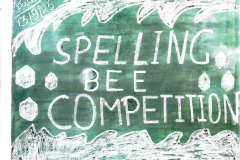 13/9/23
SPELLING
BEE
COMPETITION